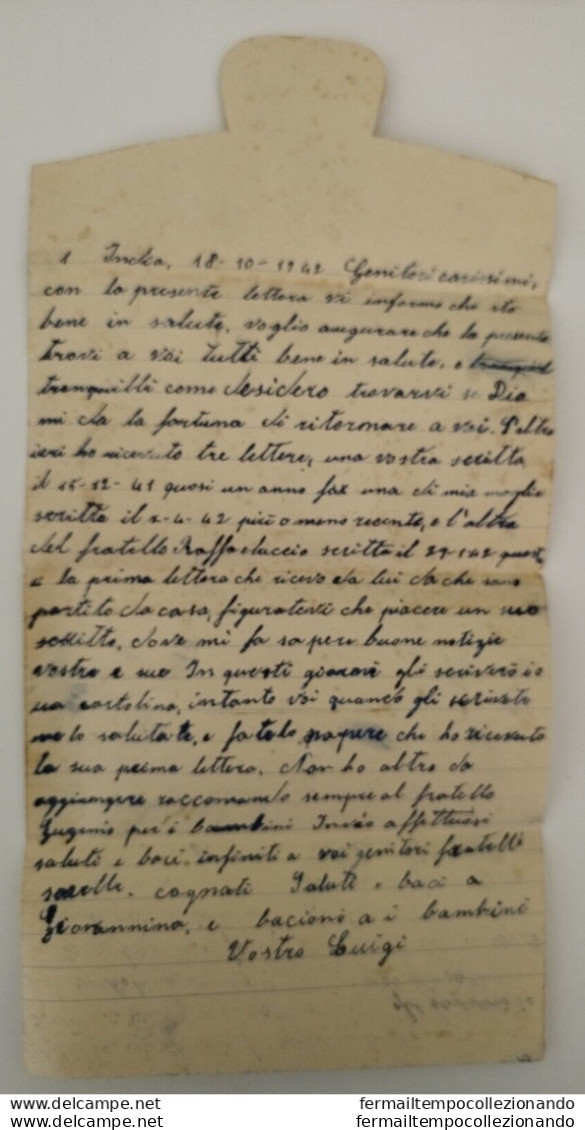 1 India, 18-10-1942 Genitori carissimi,
con la presente lettera vi informo che sto
bene in salute, voglio augurare che la presente
trovi a voi tutti bene in salute, e
tranquilli come desidero trovarvi se Dio
mi da la fortuna di ritornare a voi. L'altro
ieri ho ricevuto tre lettere, una vostra scritta
il 15-12-41 quasi un anno fa, una di mia moglie
scritta il 2-4-42 più o meno recente, e l'altra
del fratello Raffaeluccio scritta il
è la prima lettera che ricevo da lui da che sono
partito da casa, figuratevi che piacere un suo
scritto, dove mi fa sapere buone notizie
vostre e sue In questi giorni gli scriverò io
una cartolina, intanto voi quando gli scrivete
me lo salutate, e fatelo sapere che ho ricevuto
la sua prima lettera. Non ho altro da
aggiungere raccomando sempre al fratello
Eugenio per i bambini Invio affettuosi
saluti e baci infiniti a voi genitori fratelli
sorelle. cognati Saluti e baci a
Giovannino, e bacioni a i bambini
Vostro Luigi
fermailtempocollezionando
fermailtempocollezionando
https://www.delcampe.net
fermailtempocollezionando